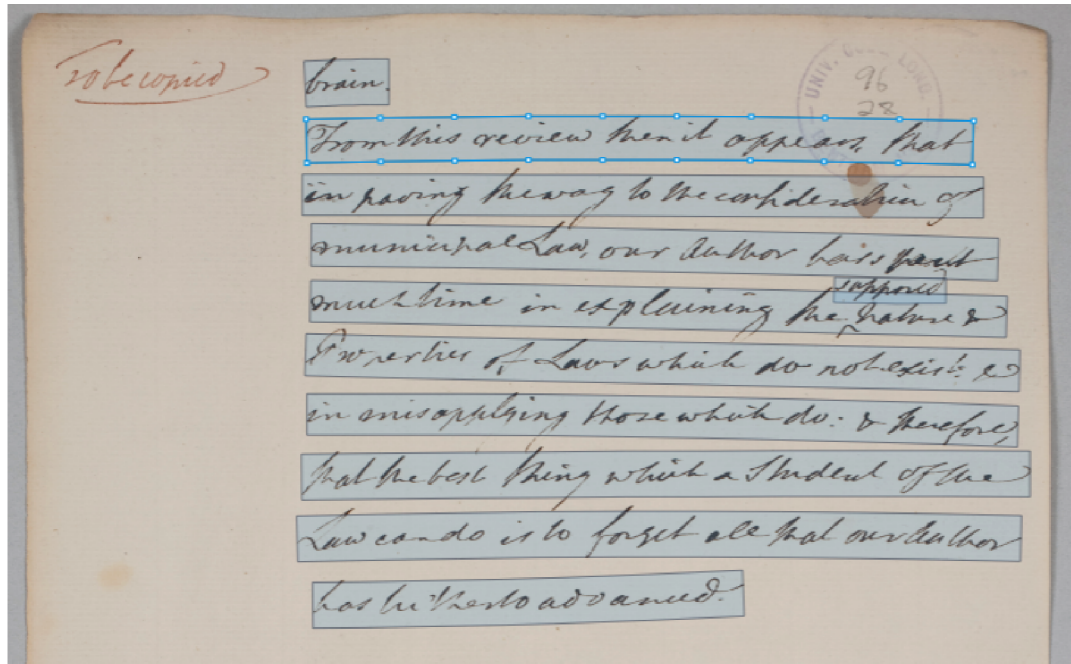 To be copied
UNIV. COLL. LOND.
96
28
brain.
From this review then it appears, that
in paving the way to the consideration of
municipal Law, our Author has spent
supposed
much time in explaining the ^ nature &
Properties of Laws which do not exist: &
in misapplying those which do: & therefore,
that the best thing which a Student of the
Law can do is to forget all that our Author
has hitherto advanced.